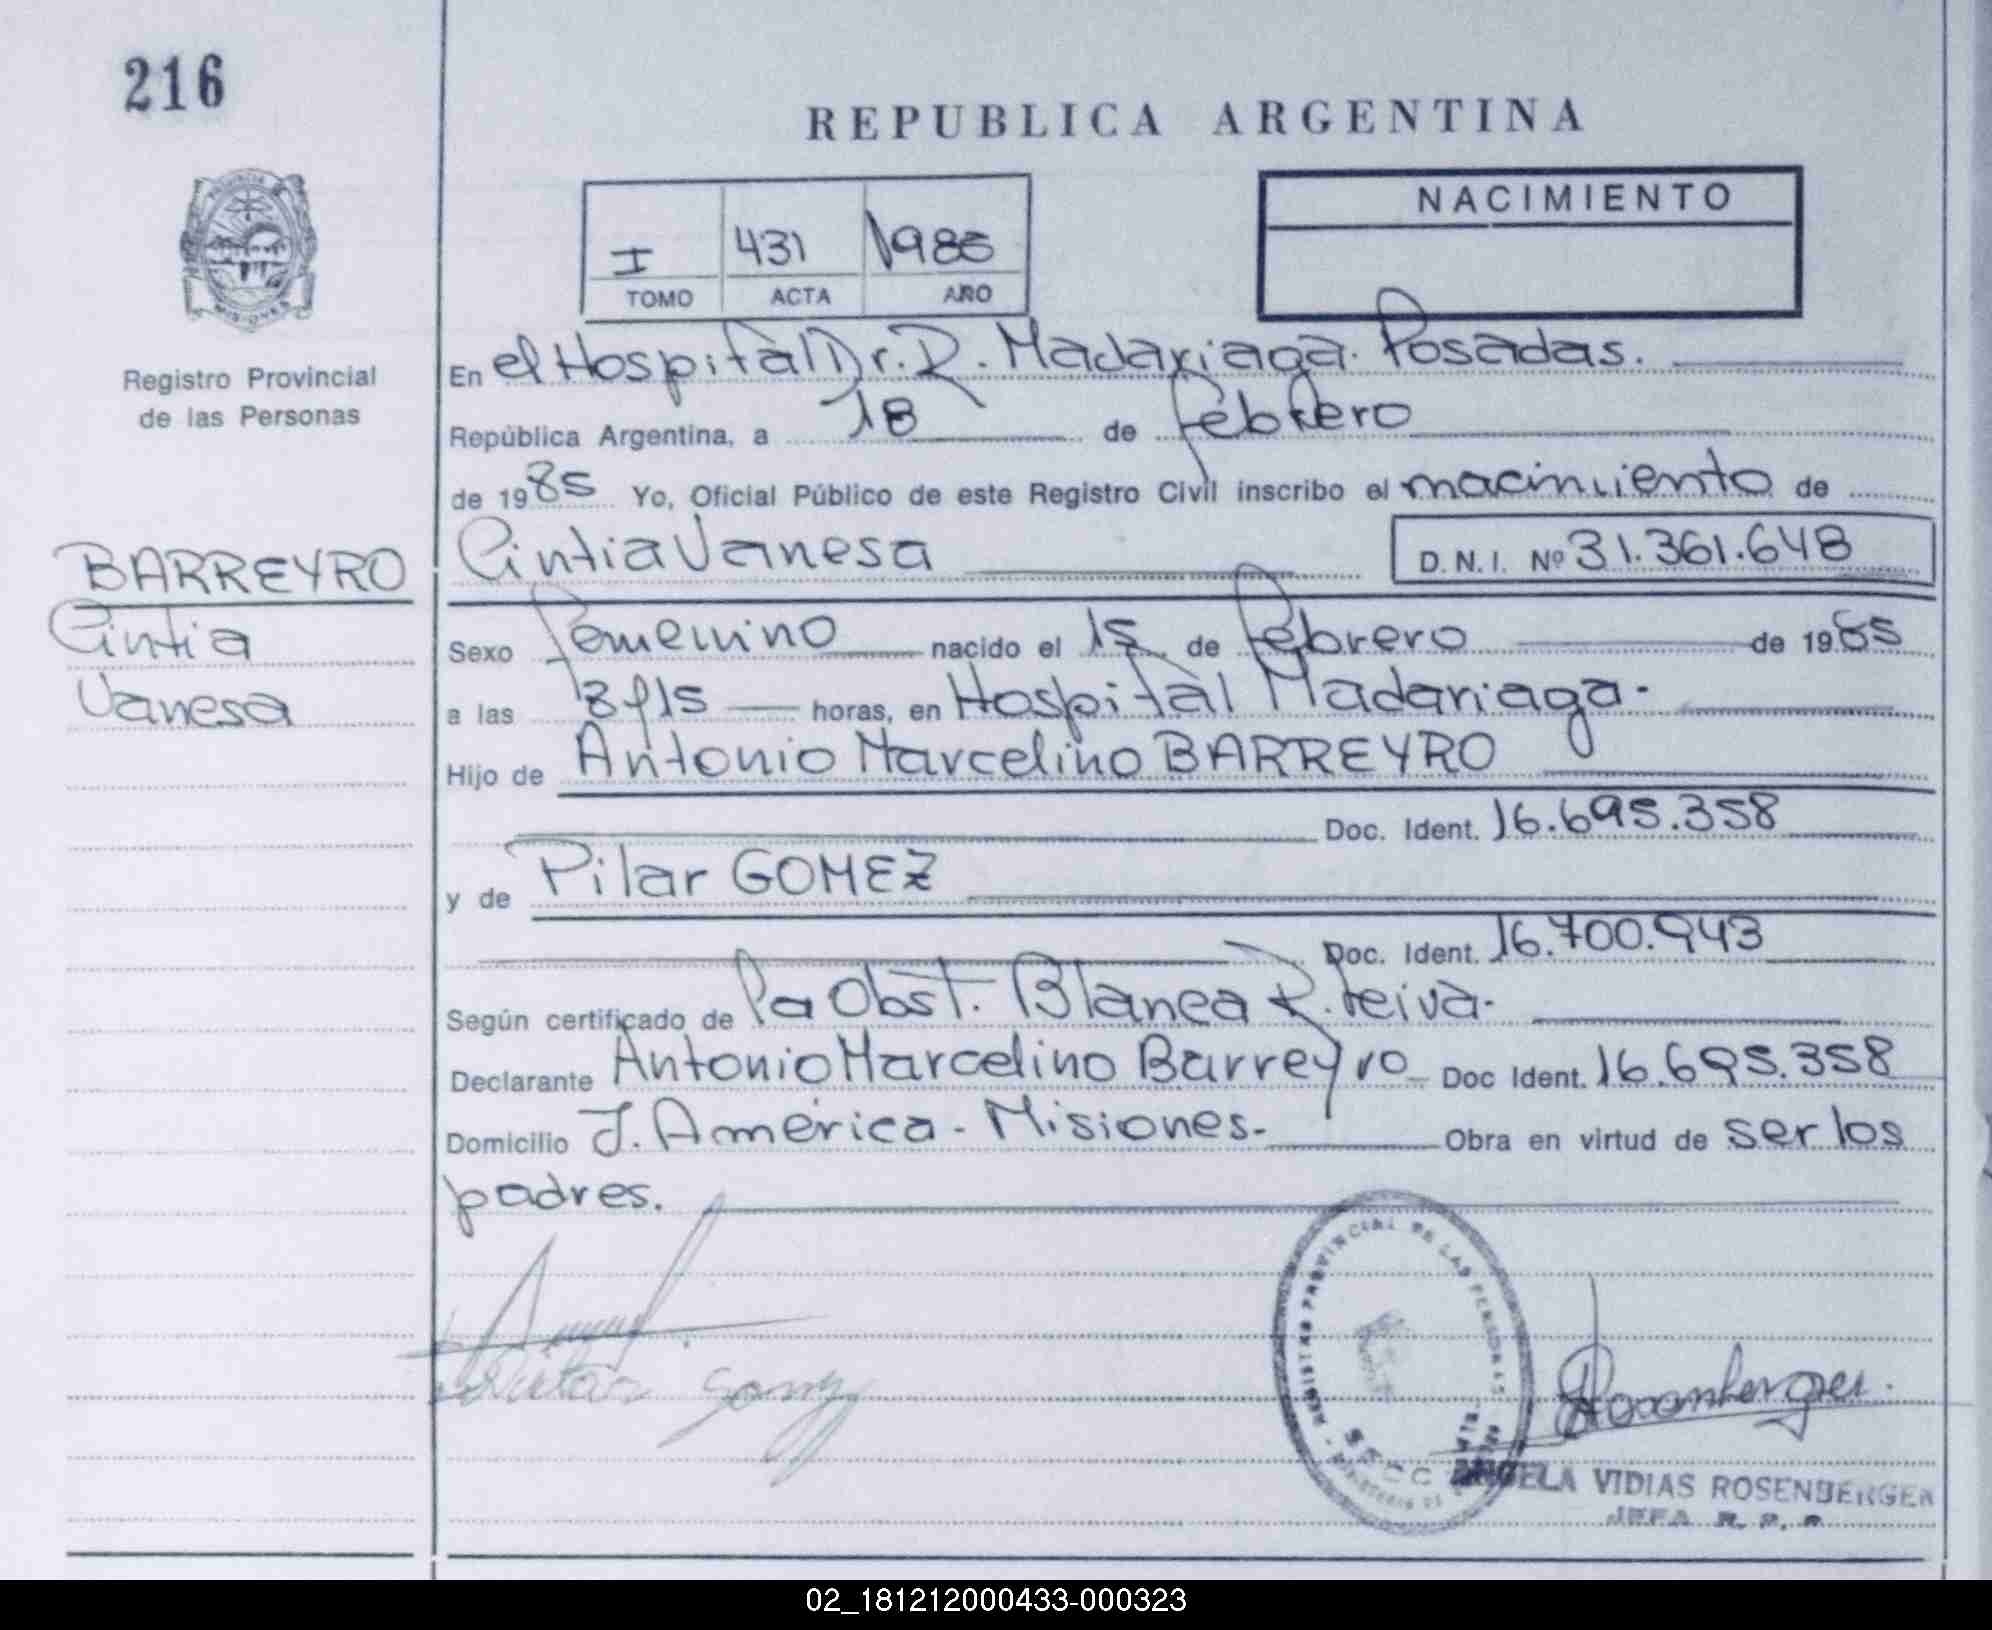 216
REPUBLICA ARGENTINA
NACIMIENTO
I 431 1985
TOMO ACTA AÑO
MISIONES
Registro Provincial
de las Personas
BARREYRO
Cintia
Vanesa
En el Hospital Dr. R. Madariaga. Posadas.
República Argentina, a 18 de febrero
de 1985 Yo, Oficial Público de este Registro Civil inscribo el nacimiento de
Cintia Vanesa D.N.I. Nº 31.361.648
Sexo femenino nacido el 15 de febrero de 1985
a las horas, en Hospital Madariaga.
Hijo de Antonio Marcelino BARREYRO
Doc. Ident. 16.695.358
y de Pilar GOMEZ
Doc. Ident. 16.700.943
Según certificado de la Obst. Blanca R.
Declarante Antonio Marcelino Barreyro Doc Ident. 16.695.358
Domicilio J. América - Misiones. Obra en virtud de ser los
padres.
PROVINCIAL DE LAS PERSONAS
ANGELA VIDIAS ROSENBERGER
JEFA R. P. P.
02_181212000433-000323